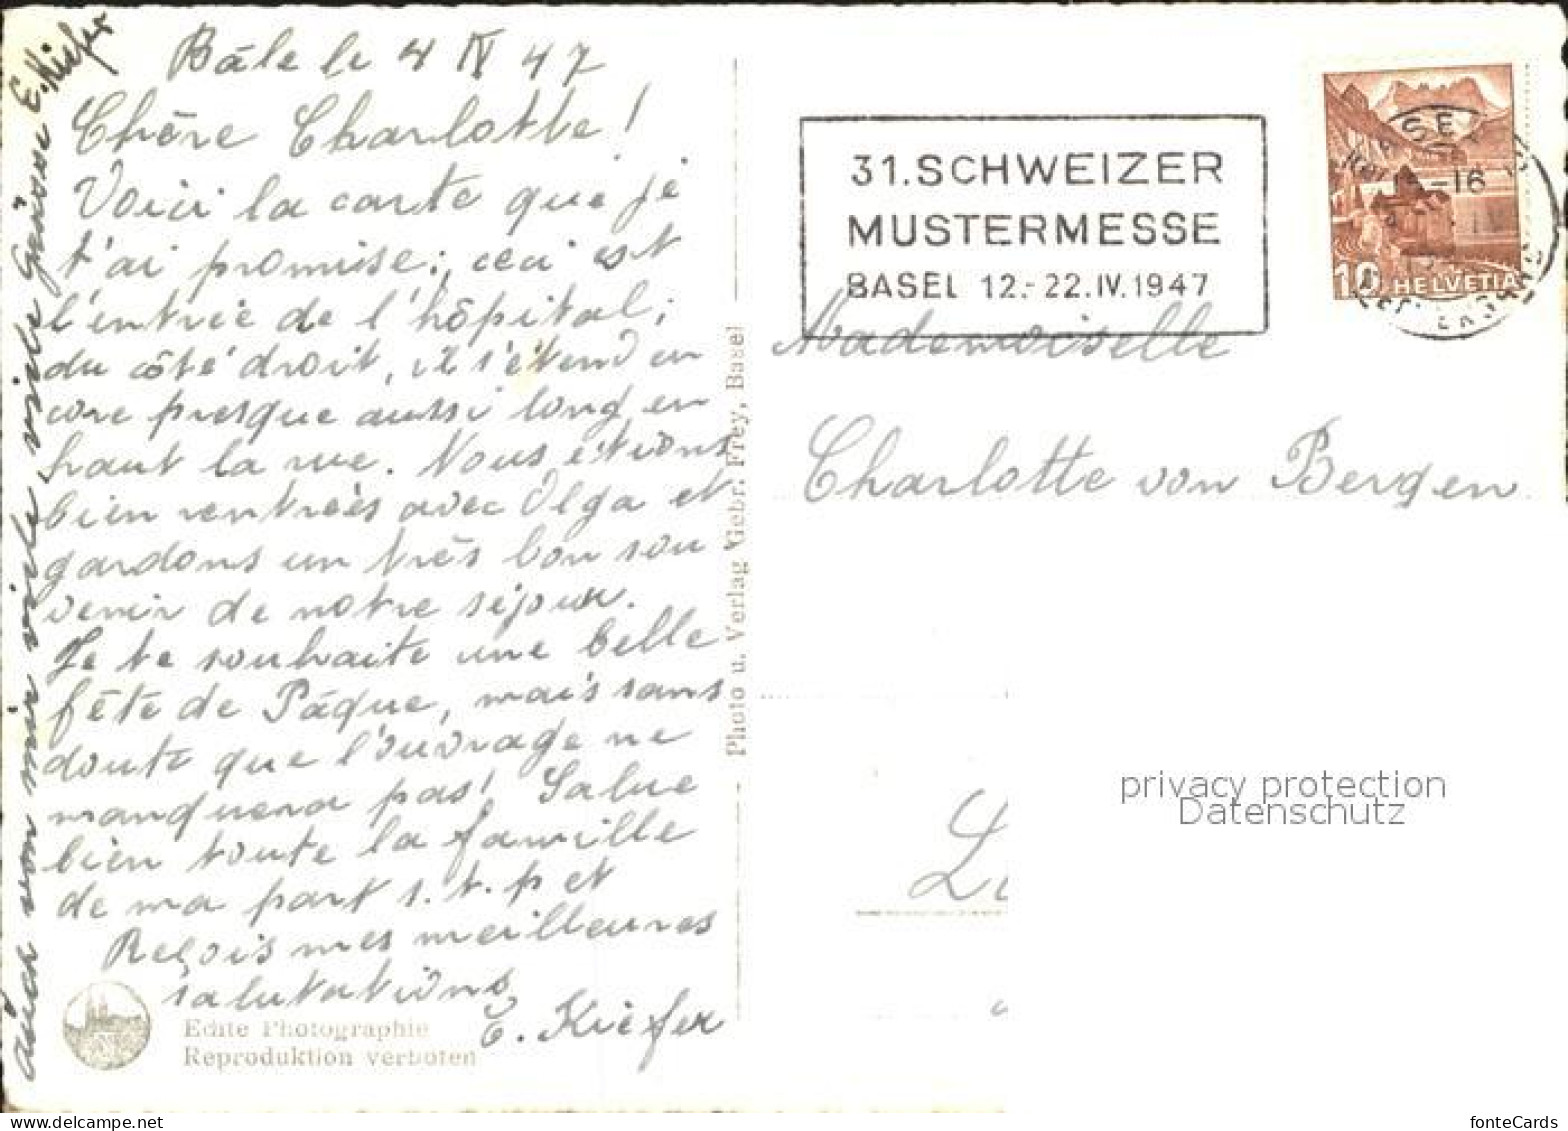 Bâle le 4 IV 47
Chère Charlotte!
Voici la carte que je
t'ai promise; ceci est
l'entrée de l'hôpital;
du côté droit, il s'étend en
core presque aussi long en
haut la rue. Nous étions
bien rentrées avec Olga et
gardons un très bon sou
venir de notre séjour.
Je te souhaite une belle
fête de Pâque, mais sans
doute que l'ouvrage ne
manquera pas! Salue
bien toute la famille
de ma part s.t.p et
Reçois mes meilleures
salutations
E. Kiefer
auch von mir viele, viele Grüsse E. Kiefer
Echte Photographie
Reproduktion verboten
Photo u. Verlag Gebr. Frey, Basel
31. SCHWEIZER
MUSTERMESSE
BASEL 12.-22.IV.1947
10 HELVETIA
Mademoiselle
Charlotte von Bergen
privacy protection
Datenschutz
fonteCards